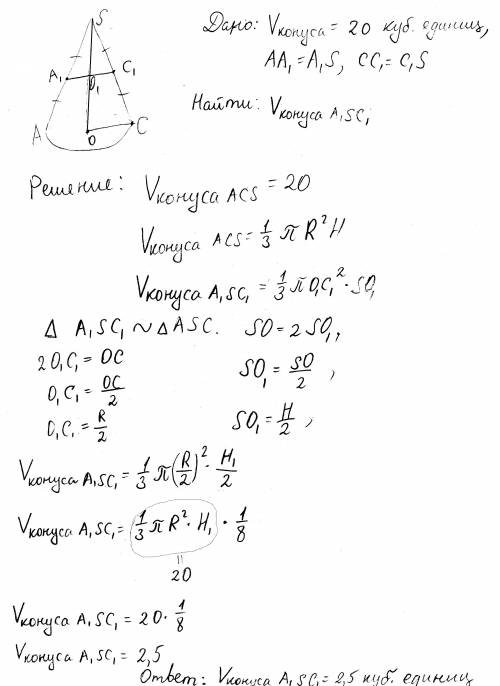 S
A₁
O₁
C₁
A
O
C
Дано: Vконуса = 20 куб. единиц,
AA₁ = A₁S, CC₁ = C₁S
Найти: Vконуса A₁SC₁
Решение: Vконуса ACS = 20
Vконуса ACS = 1/3 π R² H
Vконуса A₁SC₁ = 1/3 π O₁C₁² · SO₁
Δ A₁SC₁ ~ Δ ASC. SO = 2SO₁,
2O₁C₁ = OC
O₁C₁ = OC/2
SO₁ = SO/2,
O₁C₁ = R/2
SO₁ = H/2,
Vконуса A₁SC₁ = 1/3 π (R/2)² · H₁/2
Vконуса A₁SC₁ = 1/3 π R² · H₁ · 1/8
=
20
Vконуса A₁SC₁ = 20 · 1/8
Vконуса A₁SC₁ = 2,5
Ответ: Vконуса A₁SC₁ = 2,5 куб. единиц